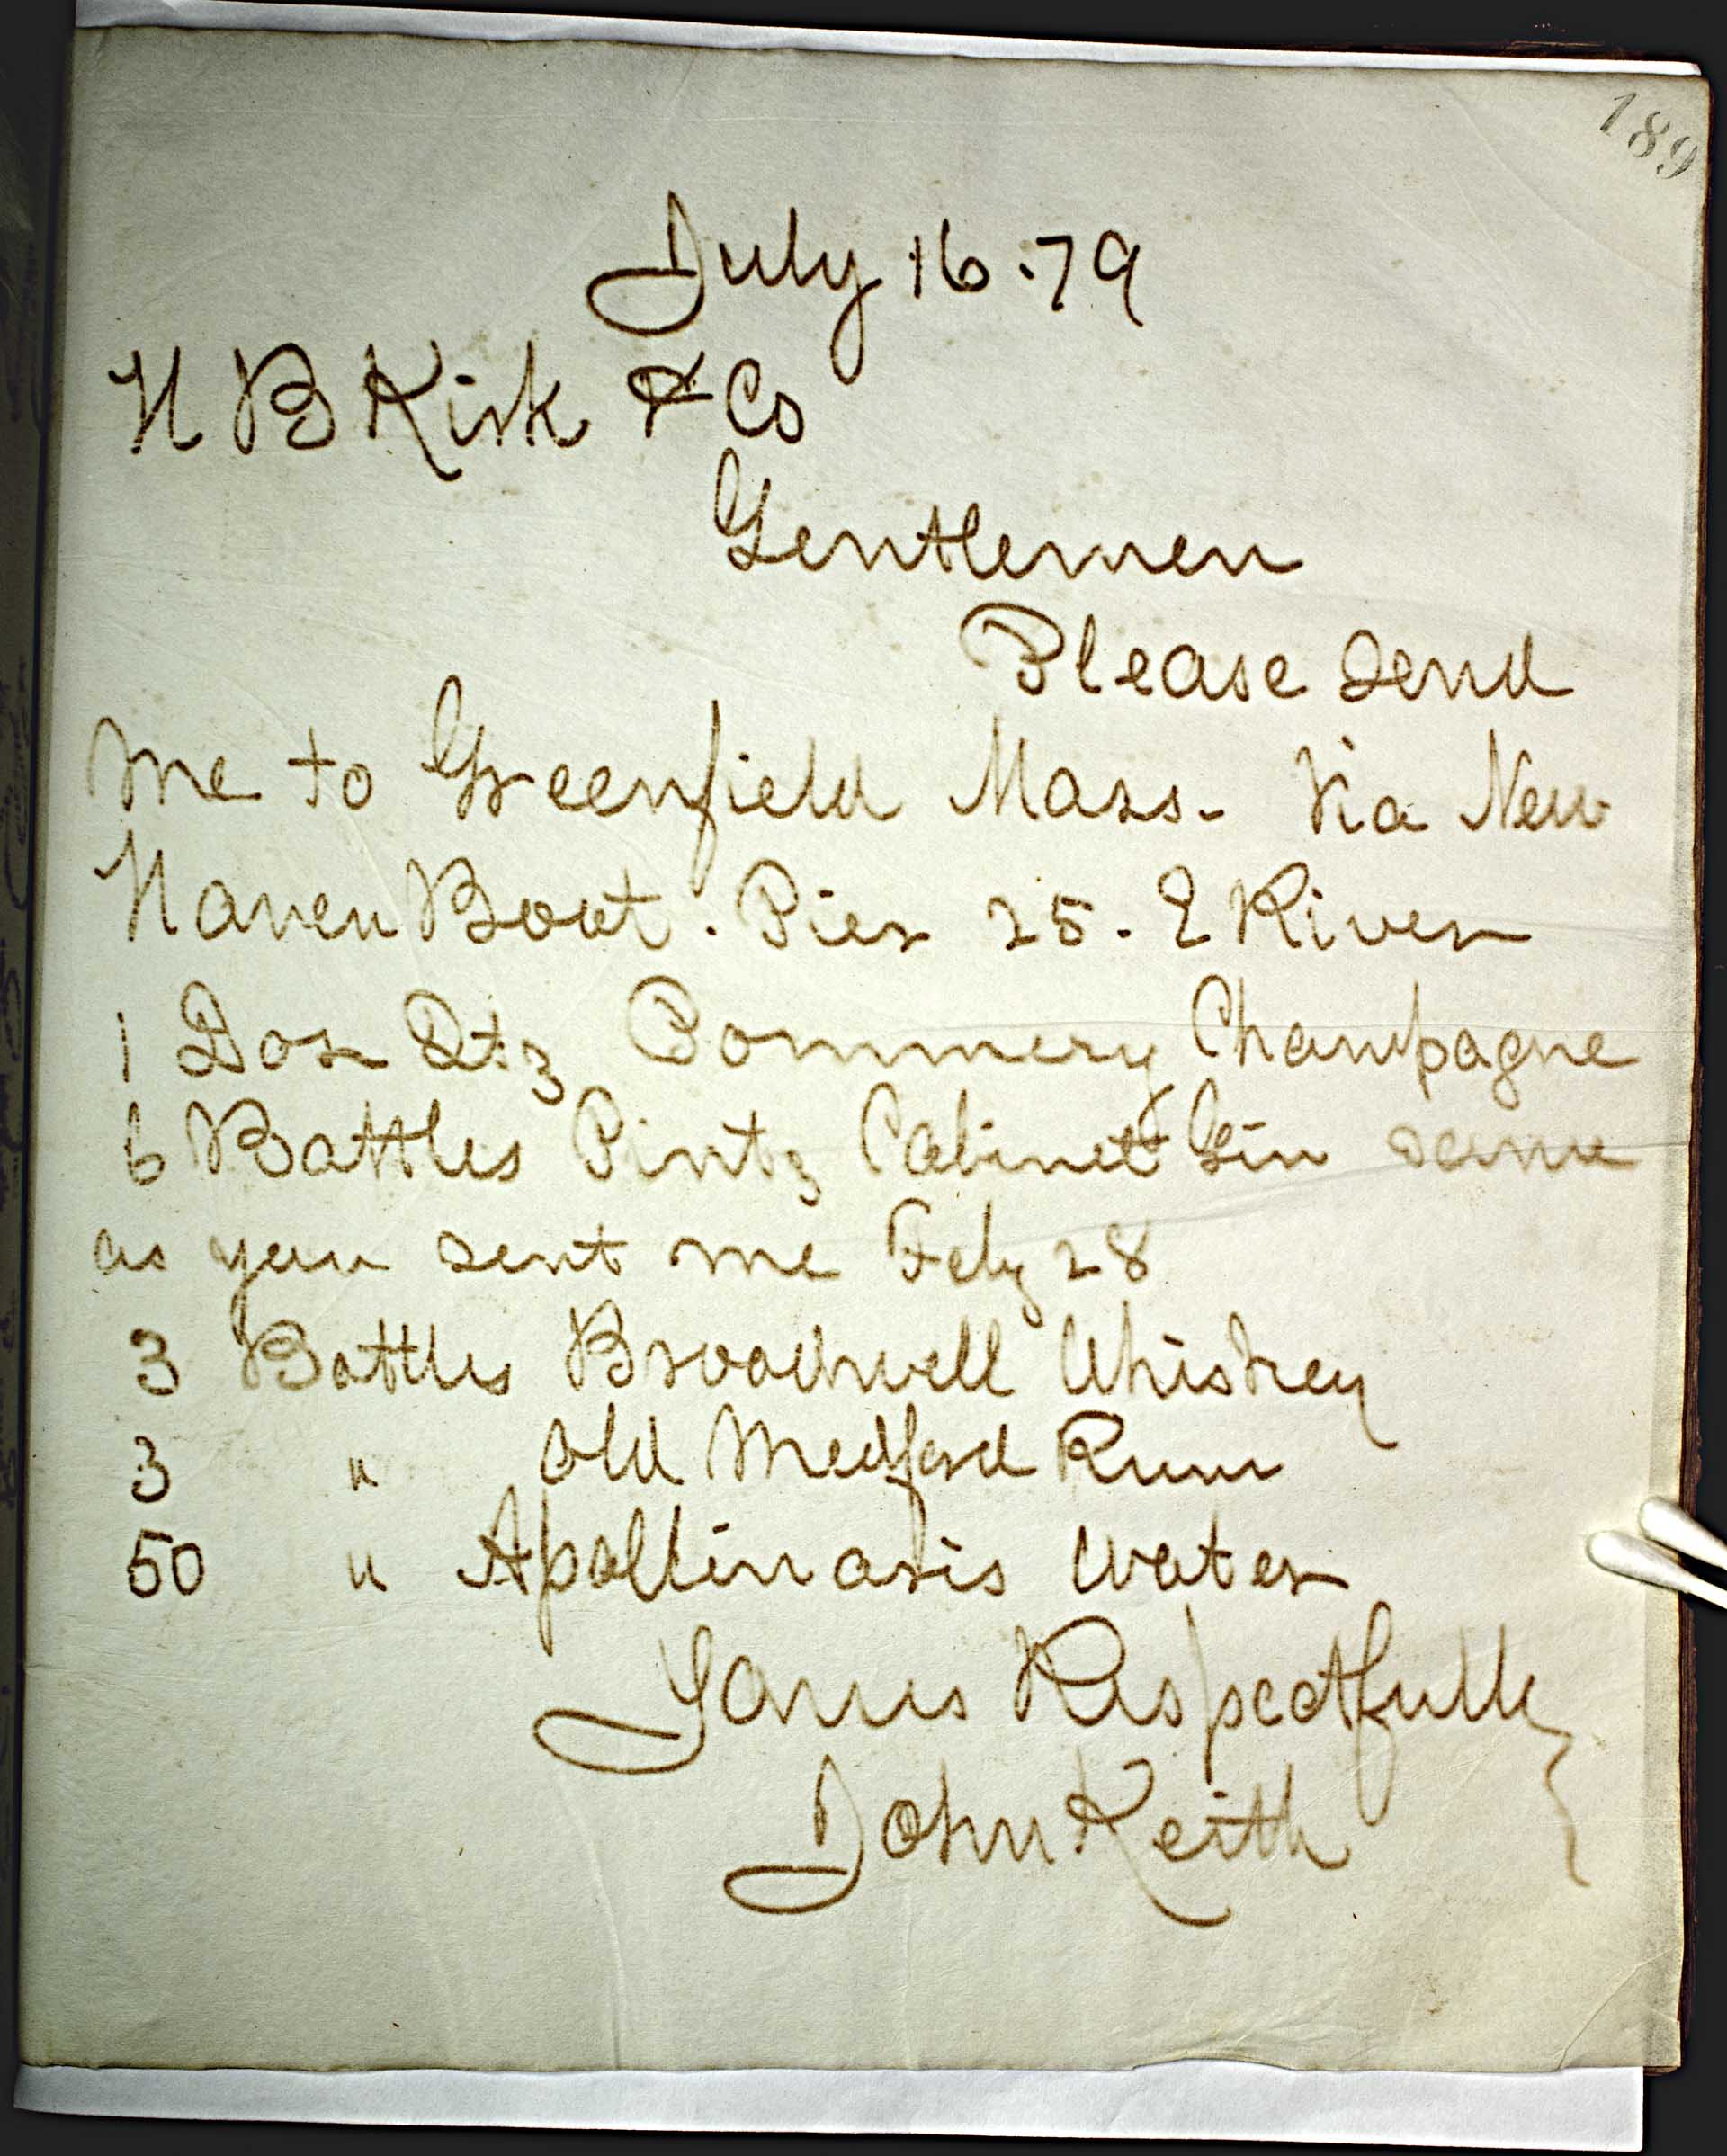 189
July 16.79
H B Kirk & Co
Gentlemen
Please send
me to Greenfield Mass. Via New
Haven Boat. Pier 25. E River
1 Doz Qts Pommery Champagne
6 Bottles Pints Cabinett Gin same
as you sent me Feby 28
3 Bottles Broadwell Whiskey
3 " Old Medford Rum
50 " Apollinaris Water
Yours Respectfully
John Keith